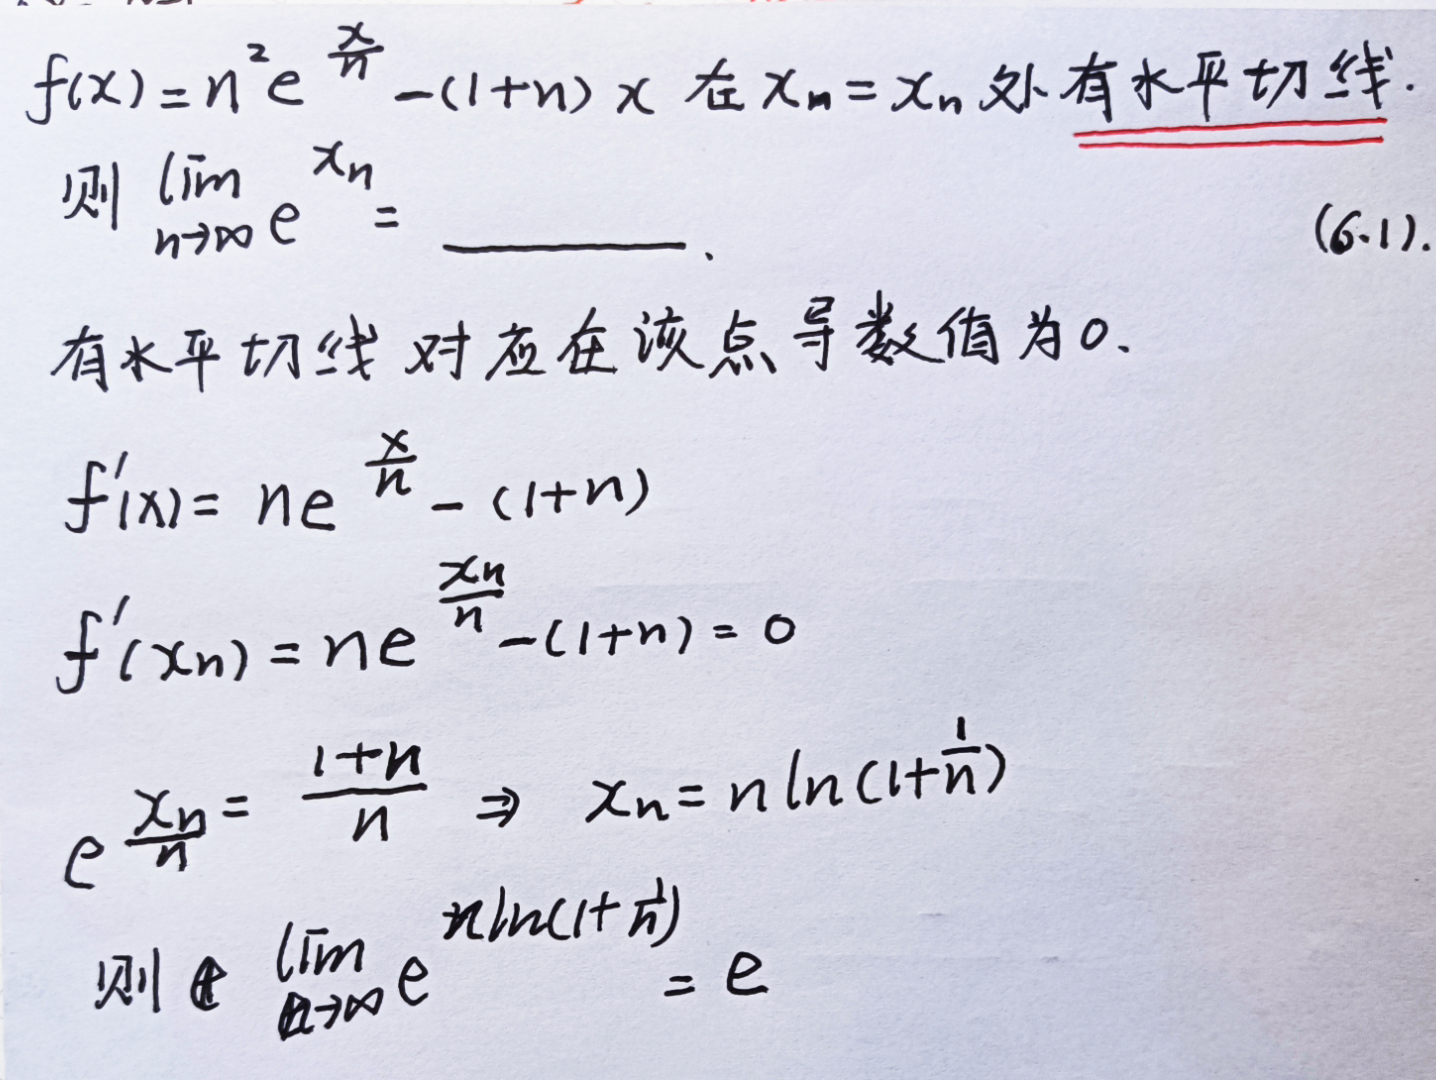 f(x) = n²e^{x/n} -(1+n) x 在 xₙ = xₙ 处有水平切线.
则 lim_{n→∞} e^{xₙ} = ______.
(6.1).
有水平切线对应在该点导数值为0.
f'(x) = ne^{x/n} - (1+n)
f'(xₙ) = ne^{xₙ/n} -(1+n) = 0
e^{xₙ/n} = (1+n)/n ⇒ xₙ = n ln(1+1/n)
则 lim_{n→∞} e^{n ln(1+1/n)} = e